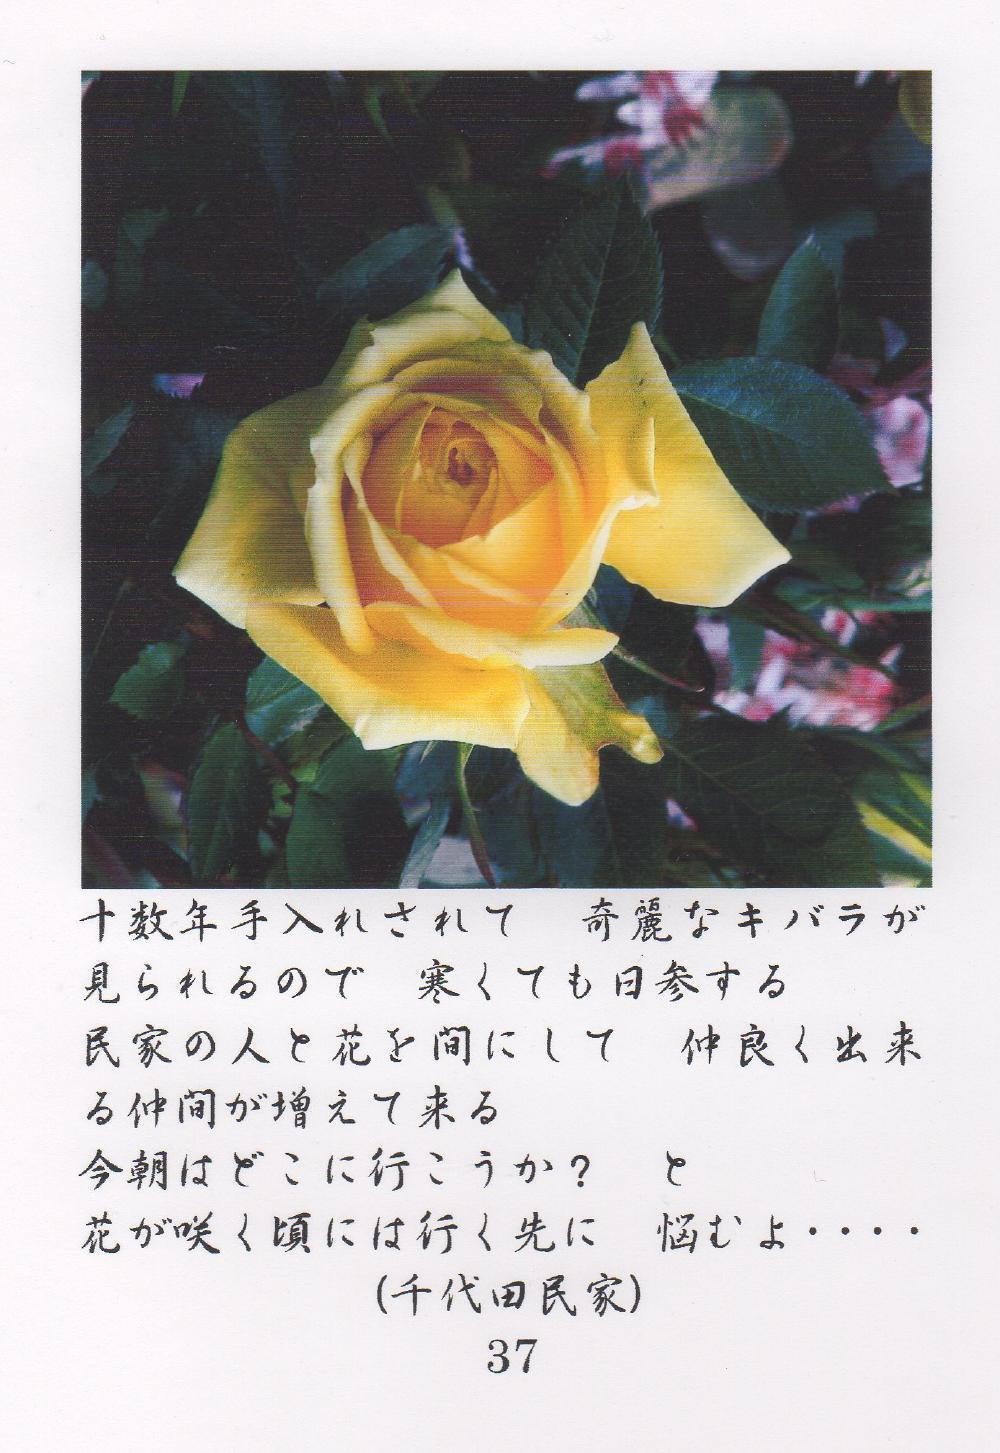 十数年手入れされて　奇麗なキバラが
見られるので　寒くても日参する
民家の人と花を間にして　仲良く出来
る仲間が増えて来る
今朝はどこに行こうか？　と
花が咲く頃には行く先に　悩むよ・・・・
(千代田民家)
37